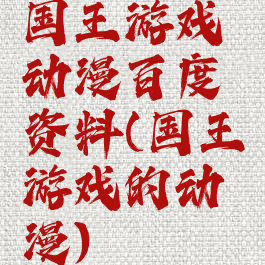 国王游戏
动漫百度
资料(国王
游戏的动
漫)